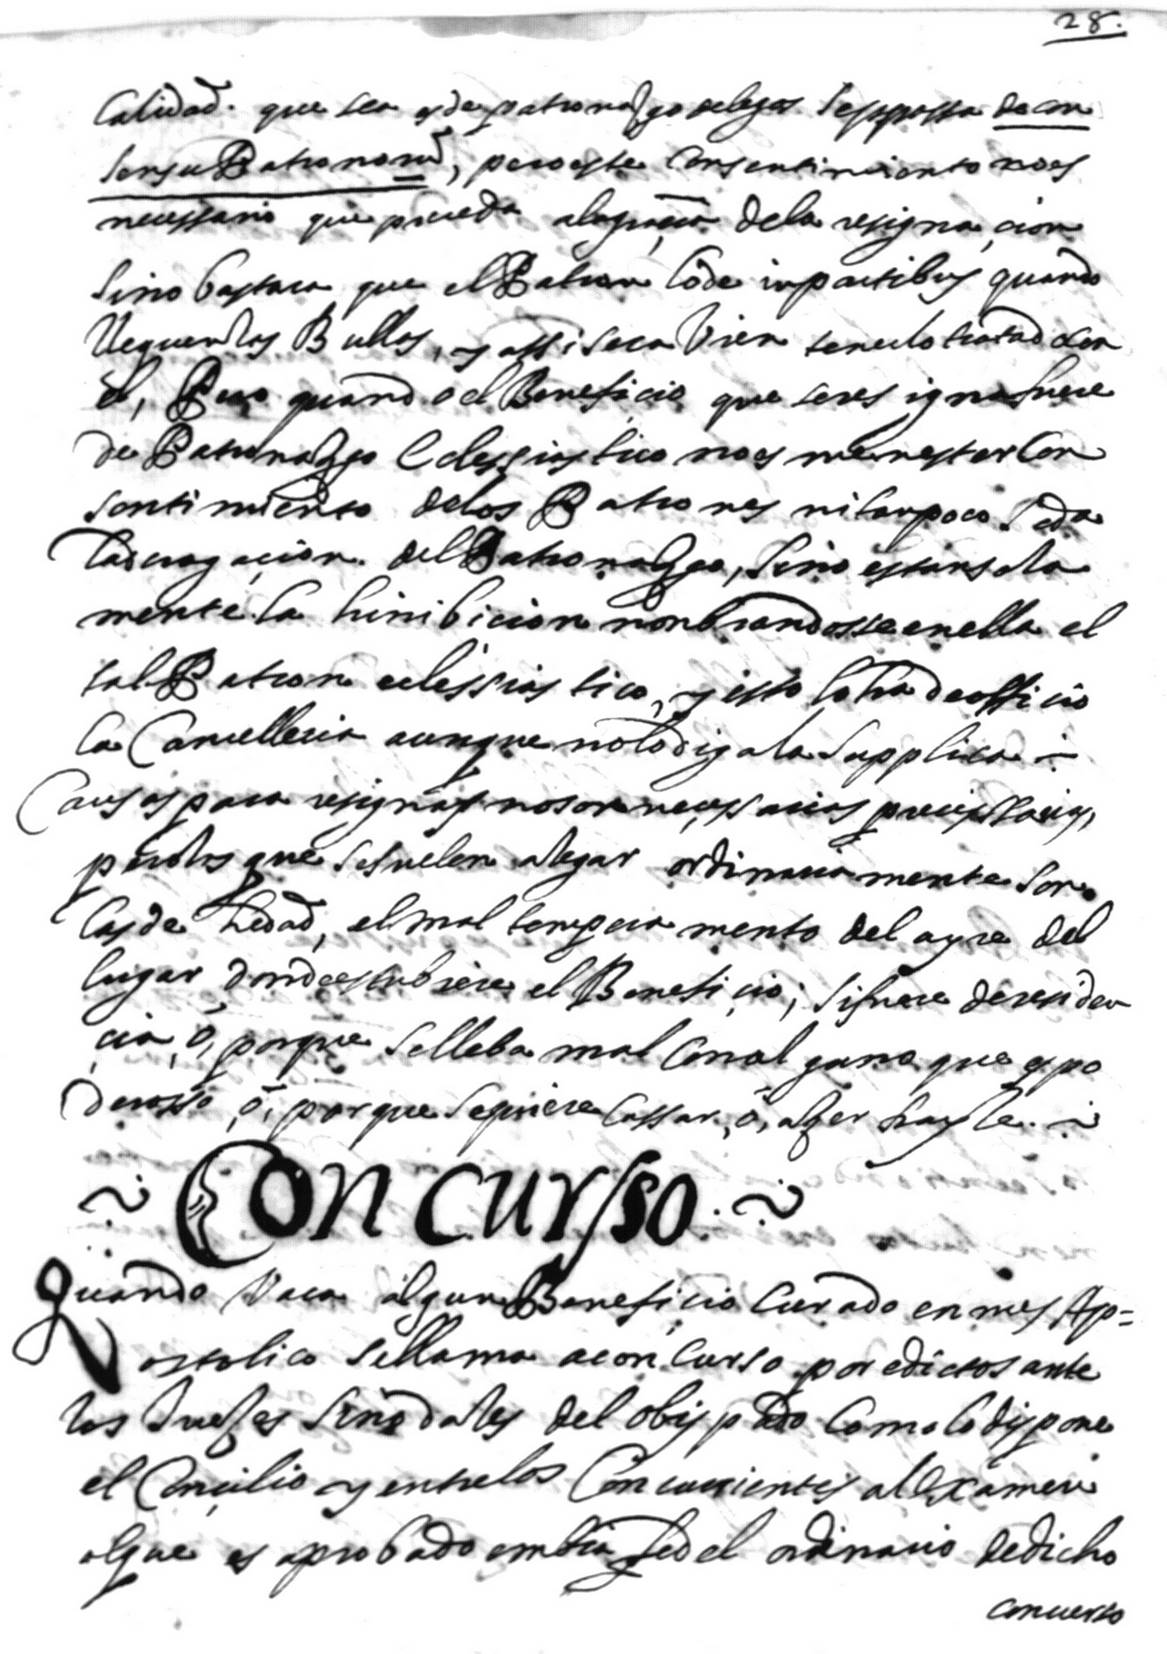 28.
Calidad. que sea es de patronazgo de legos se esprossa de con
sensu Patronorũ, pero este Consentimiento no es
necessario que preceda a la graçia de la resignaçion
Sino bastara que el Patron lo de in partibus quando
lleguen las Bullas, y assi sera bien tenerlo tratado con
el, Pero quando el Beneficio que se resigna fuere
de Patronazgo Eclessiastico no es menester Con
sentimiento de los Patrones ni tampoco se da
la derogaçion del Patronazgo, sino es tan sola
mente la hinibicion nonbrandosse en ella el
tal Patron eclessiastico, y esto lo ha de officio
la Cancelleria aunque no lo diga la Supplica
Causas para resignar no son neçessarias precissas,
pero las que se suelen alegar ordinariamente son
las de hedad, el mal temperamento del ayre del
lugar donde estubiere el Beneficio, si fuere de residen
cia, ó, porque se lleba mal con alguno que es po
derosso, ó, porque se quiere Cassar, ó, azer frayle.
Concursso.
Quando Vaca algun Beneficio Curado en mes Ap=
ostolico se llama a conCurso por edictos ante
los Juezes Sinodales del obispado Como lo dispone
el Conçilio y entre los Concurrientes al Examen
el que es aprobado embia fed el ordinario de dicho
concurso